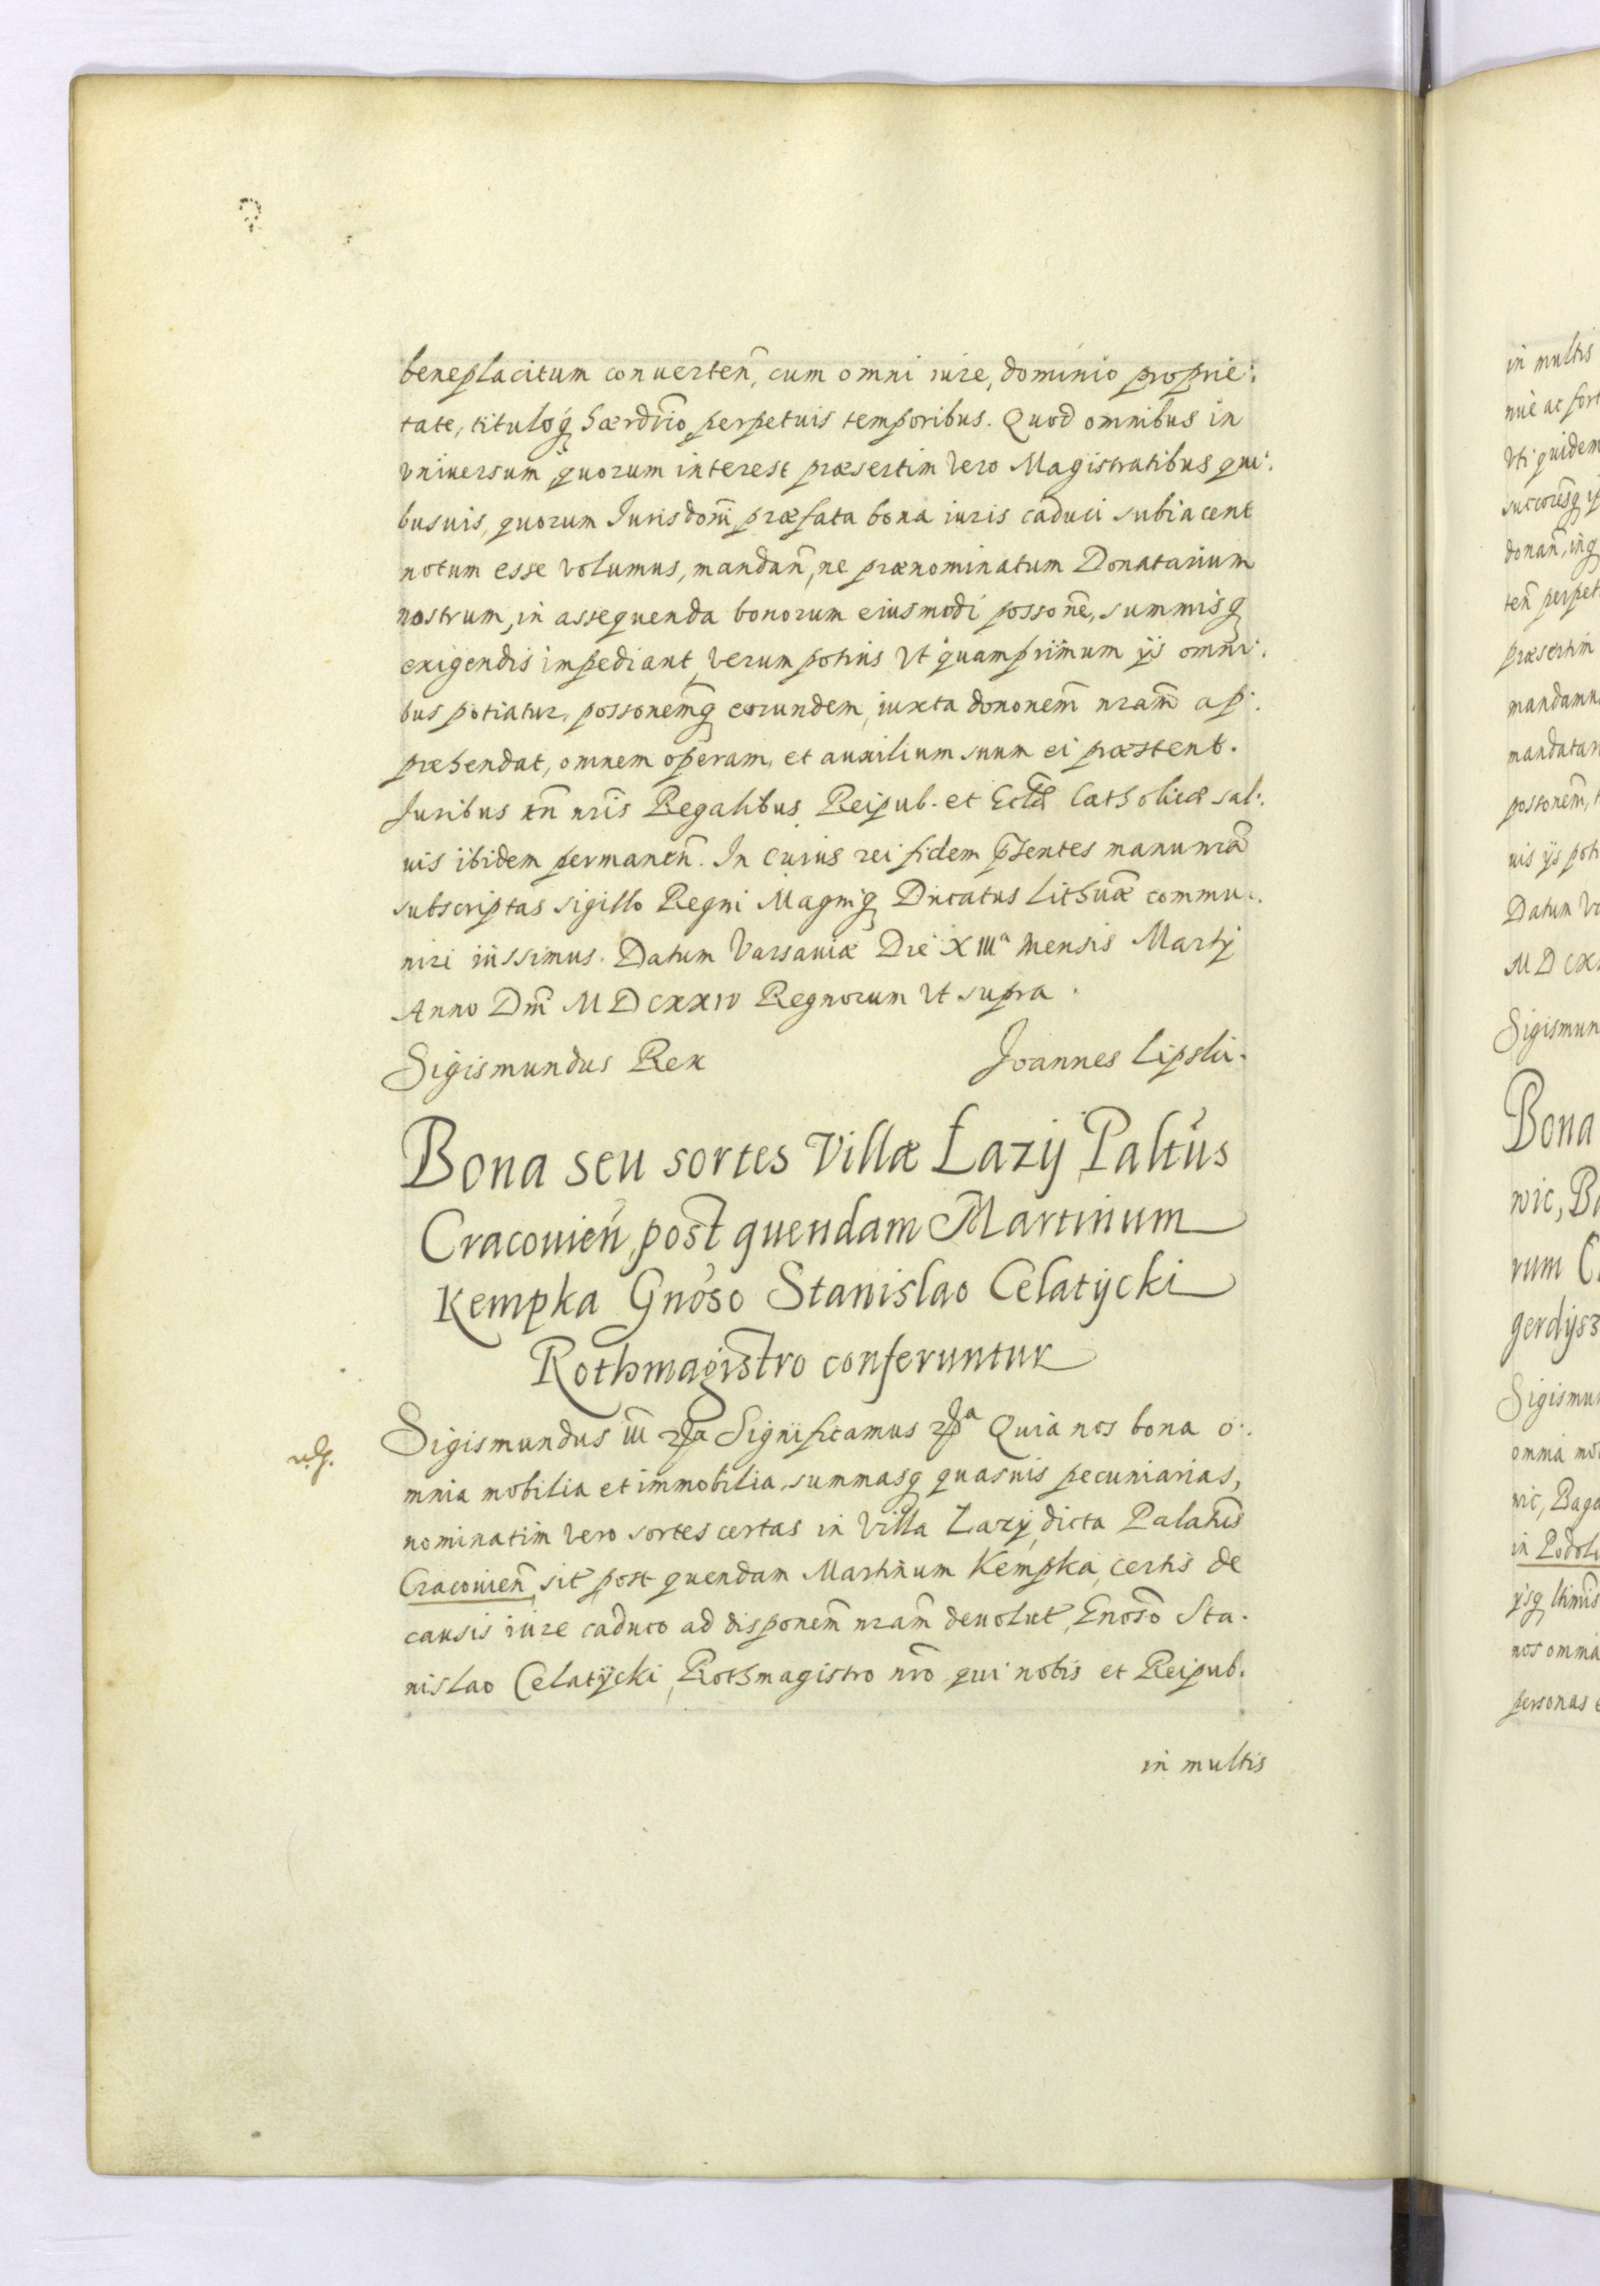 beneplacitum conuerten̄, cum omni iure, dominio proprie:
tate, tituloq́ hærdr̄io perpetuis temporibus. Quod omnibus in
vniuersum quorum interest præsertim vero Magistratibus qui:
busuis, quorum Jurisdoni̅ præfata bona iuris caduci subiacent
notum esse volumus, mandan̄, ne prænominatum Donatarium
nostrum, in assequenda bonorum eiusmodi possone̅, summisq
exigendis impediant, verum potius vt quamprimum ijs omni:
bus potiatur, possonem̅q eorundem, iuxta dononem̅ nram̅ ap:
præhendat, omnem operam, et auxilium suum ei præstent.
Juribus tn̄ nr̄is Regalibus Reipub. et Eccl̄æ Catholicæ sal:
uis ibidem permanen̄. In cuius rei fidem p̄sentes manu nrā
subscriptas sigillo Regni Magniq Ducatus Lithuæ̅ commu:
niri iussimus. Datum Varsauiæ Die XIIIa mensis Martij
Anno Dm̅ MDCXXIV Regnorum vt supra.
Sigismundus Rex Joannes Lipski.
Bona seu sortes Villæ Łazij Paltu̅s
Cracouien̄, post quendam Martinum
Kempka Gno̅so Stanislao Celatÿcki
Rothmagistro conferuntur
Sigismundus III Significamus Quia nos bona o:
mnia mobilia et immobilia, summasq quasuis pecuniarias,
nominatim vero sortes certas in Villa Łazÿ dicta Palatus̅
Cracouien̄ sit̄ post quendam Martinum Kempka, certis de
causis iure caduco ad disponem̅ nram̅ deuolut̄, Gnoso̅ Sta:
nislao Celatÿcki, Rothmagistro nr̄o qui nobis et Reipub.
in multis
in multis
Vti quidem
donan̄, inq
præsertim
mandamu
mandatar
possonem̅,
uis ijs poti
Datum Va
MDCX
Sigismun
Bona
wic, B
rum C
gerdijs
Sigismu
omnia mo
wic, Baga
in Podol
nos omnia
personas